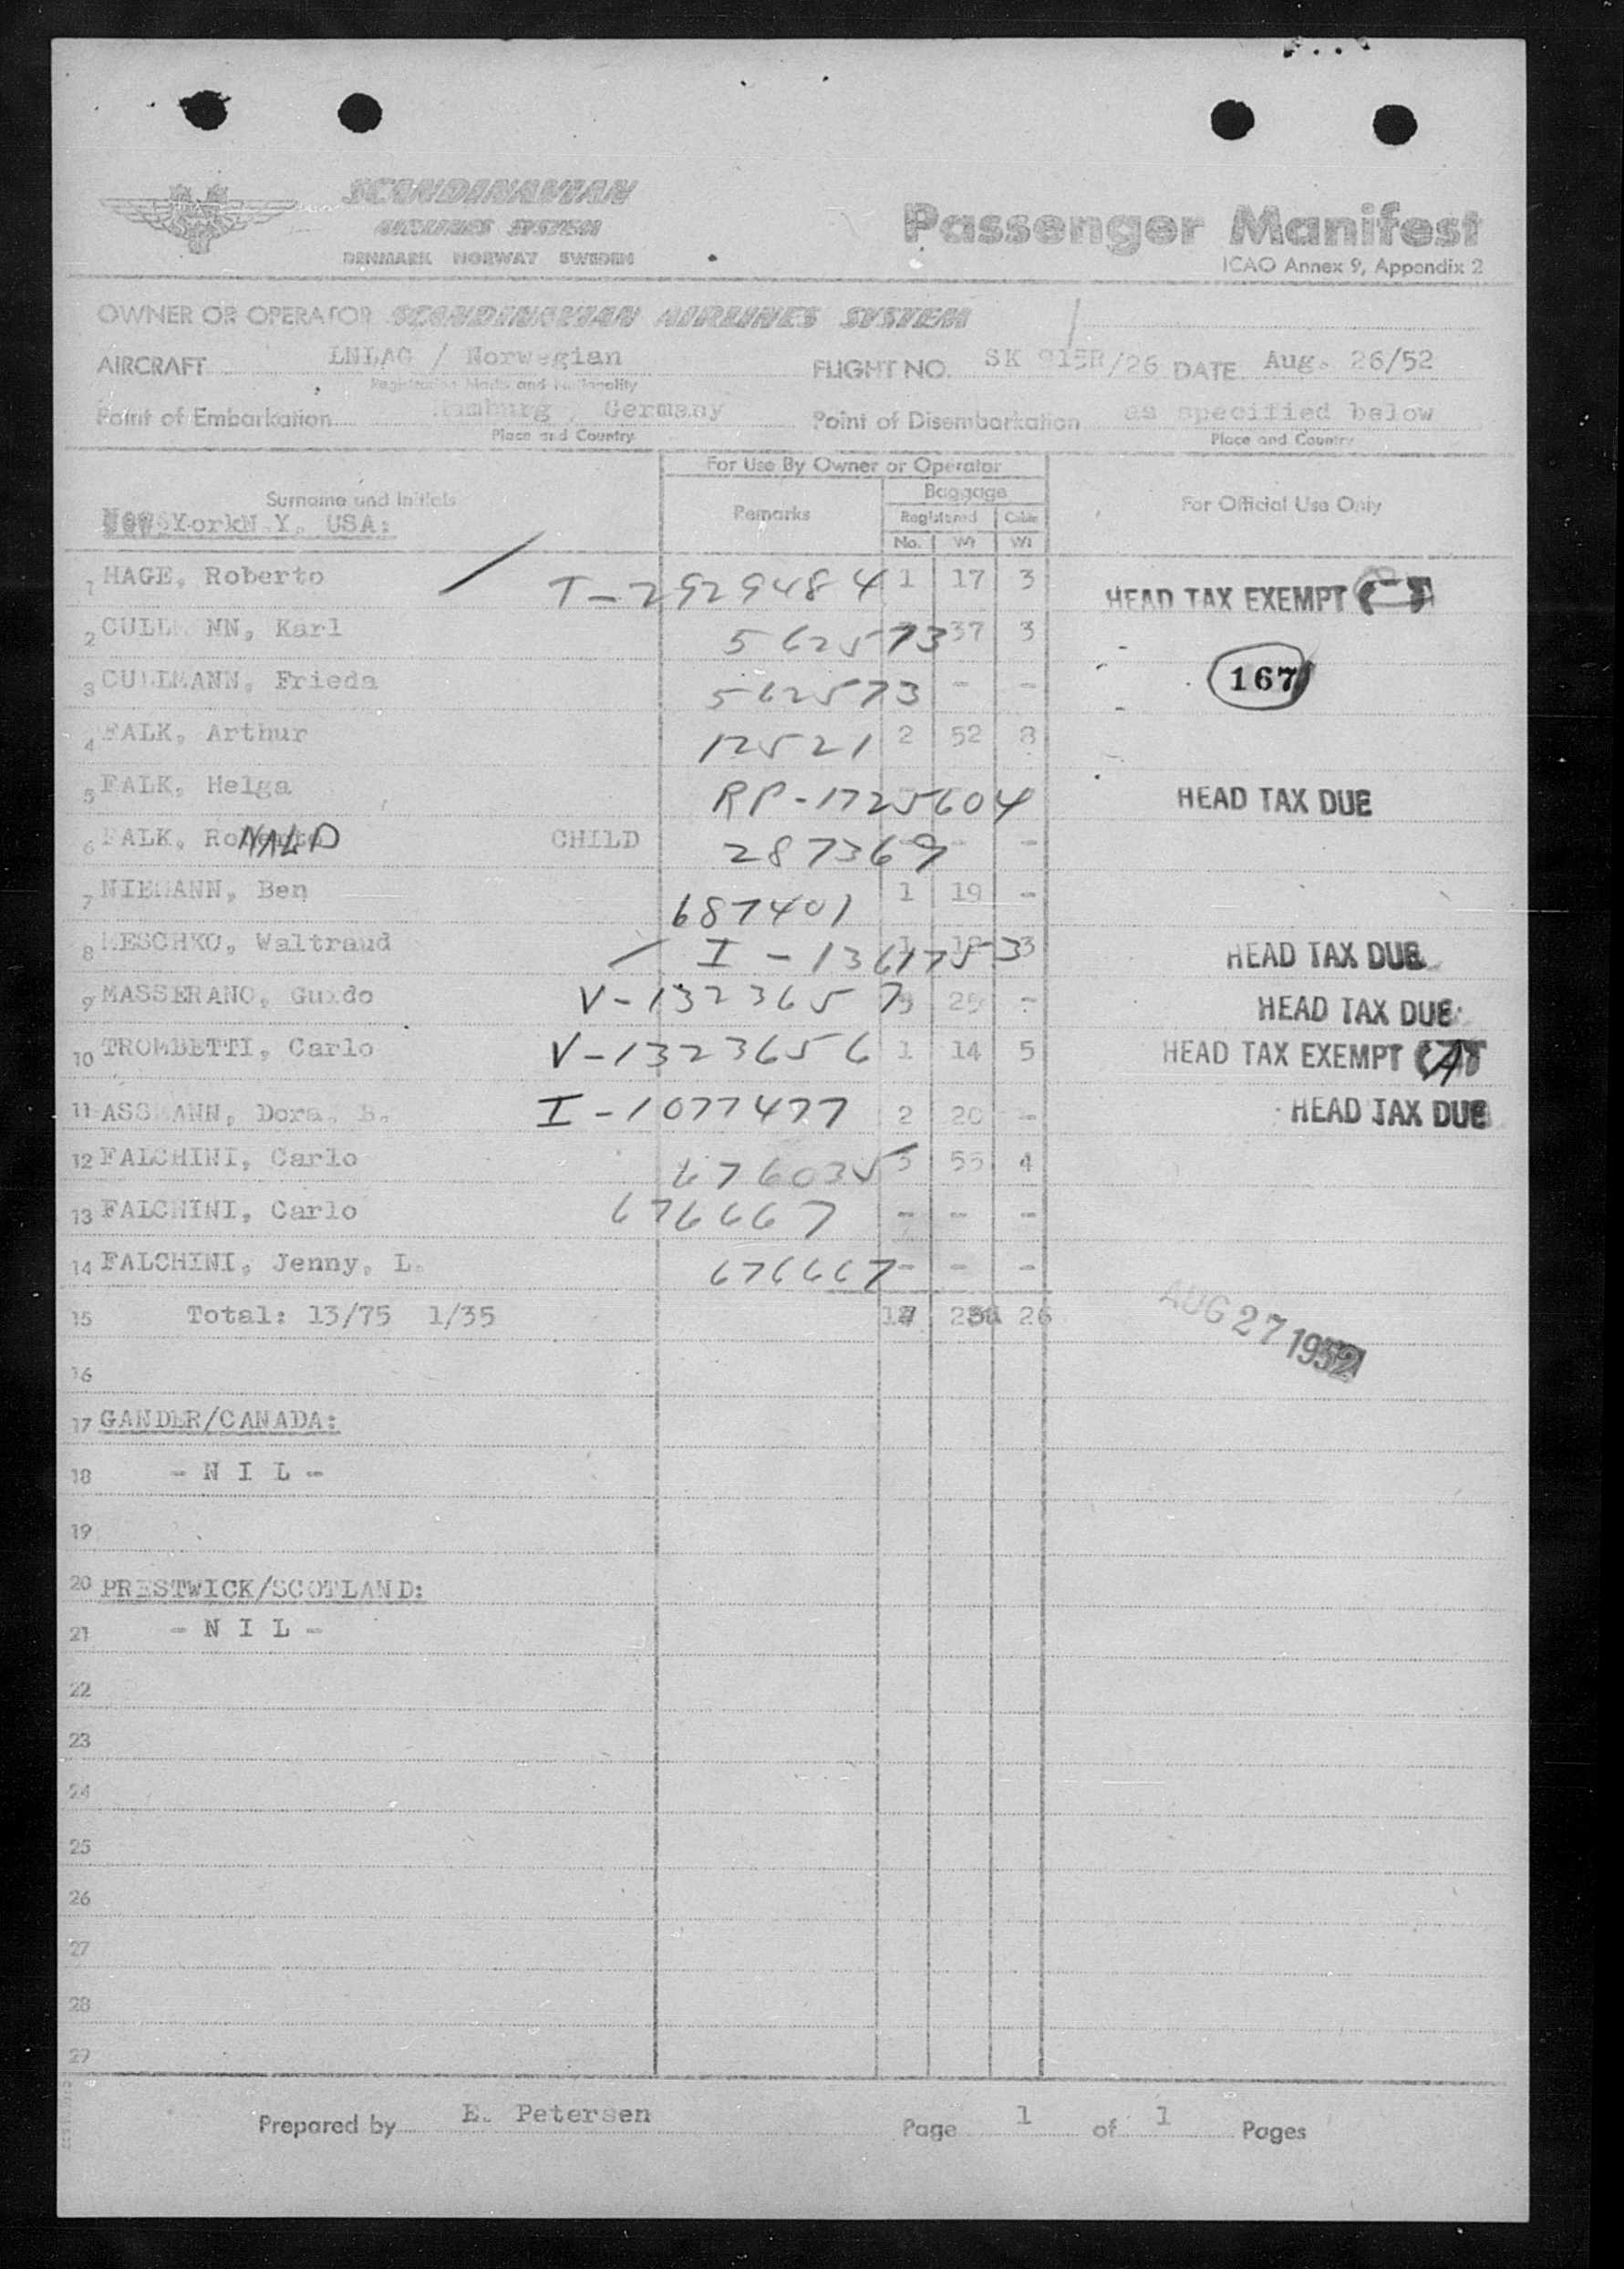 SCANDINAVIAN
AIRLINES SYSTEM
DENMARK NORWAY SWEDEN
Passenger Manifest
ICAO Annex 9, Appendix 2
OWNER OR OPERATOR SCANDINAVIAN AIRLINES SYSTEM
AIRCRAFT LNLAG / Norwegian FLIGHT NO. SK 915R/26 DATE Aug. 26/52
Registration Marks and Nationality
Point of Embarkation Hamburg, Germany Point of Disembarkation as specified below
Place and Country Place and Country
For Use By Owner or Operator
Surname and Initials Remarks Baggage For Official Use Only
Registered Cabin
No. Wt Wt
New York N.Y. USA:
1 HAGE, Roberto T-2929484 1 17 3 HEAD TAX EXEMPT
2 CULLMANN, Karl 562573 37 3
167
3 CULLMANN, Frieda 562573 - -
4 FALK, Arthur 12521 2 52 8
5 FALK, Helga RP-1725604 HEAD TAX DUE
6 FALK, RoNALD CHILD 287369 - -
7 NIEMANN, Ben 687401 1 19 -
8 MESCHKO, Waltraud I-1361753 1 18 3 HEAD TAX DUE
9 MASSERANO, Guido V-1323657 3 25 - HEAD TAX DUE
10 TROMBETTI, Carlo V-1323656 1 14 5 HEAD TAX EXEMPT
11 ASSMANN, Dora, B. I-1077477 2 20 - HEAD TAX DUE
12 FALCHINI, Carlo 676035 5 55 4
13 FALCHINI, Carlo 676667 - - -
14 FALCHINI, Jenny, L. 676667 - - -
15 Total: 13/75 1/35 26
AUG 27 1952
16
17 GANDER/CANADA:
18 - N I L -
19
20 PRESTWICK/SCOTLAND:
21 - N I L -
22
23
24
25
26
27
28
29
Prepared by E. Petersen Page 1 of 1 Pages